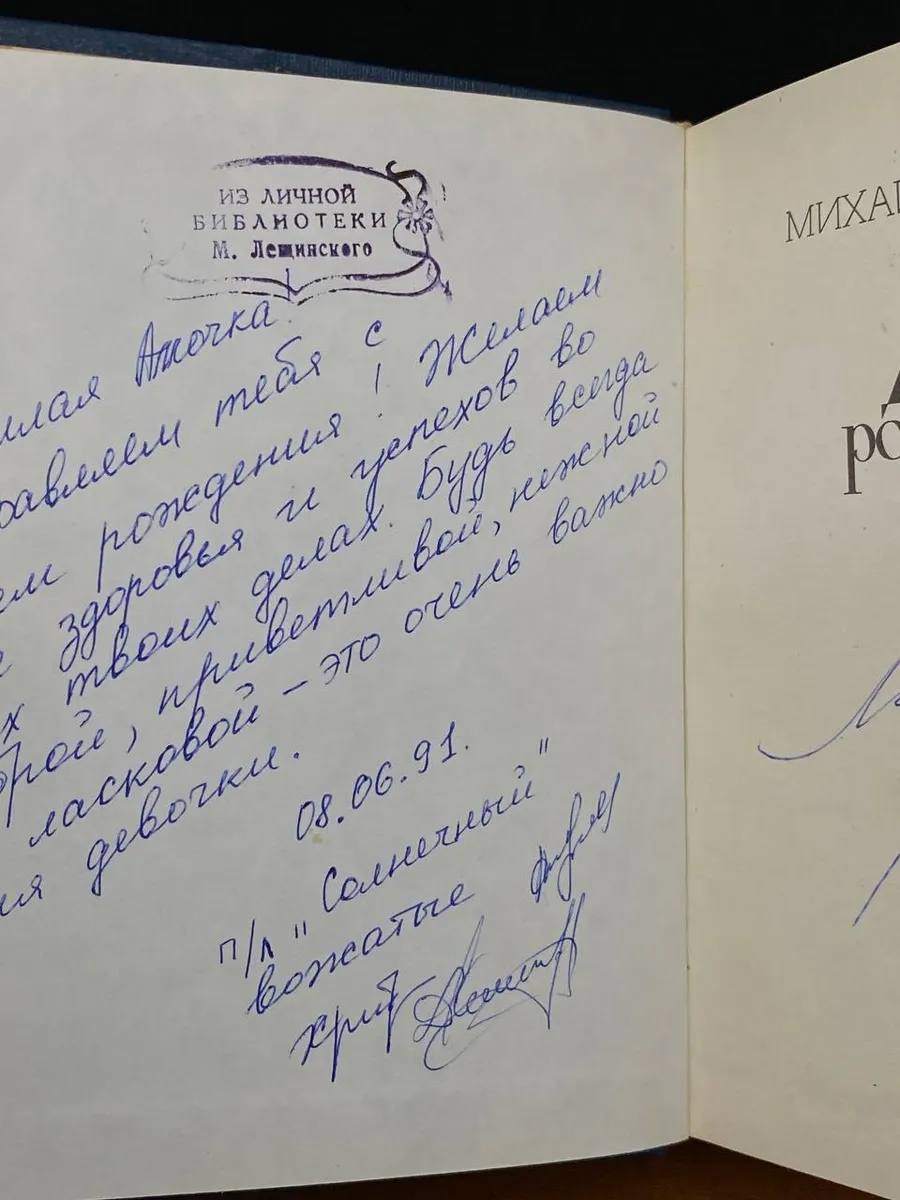 ИЗ ЛИЧНОЙ
БИБЛИОТЕКИ
М. Лещинского
илая Анночка!
равляем тебя с
ем рождения! Желаем
здоровья и успехов во
х твоих делах. Будь всегда
брой, приветливой, нежной
ласковой – это очень важно
ля девочки.
08.06.91.
п/л "Солнечный"
вожатые
МИХАИ
ро